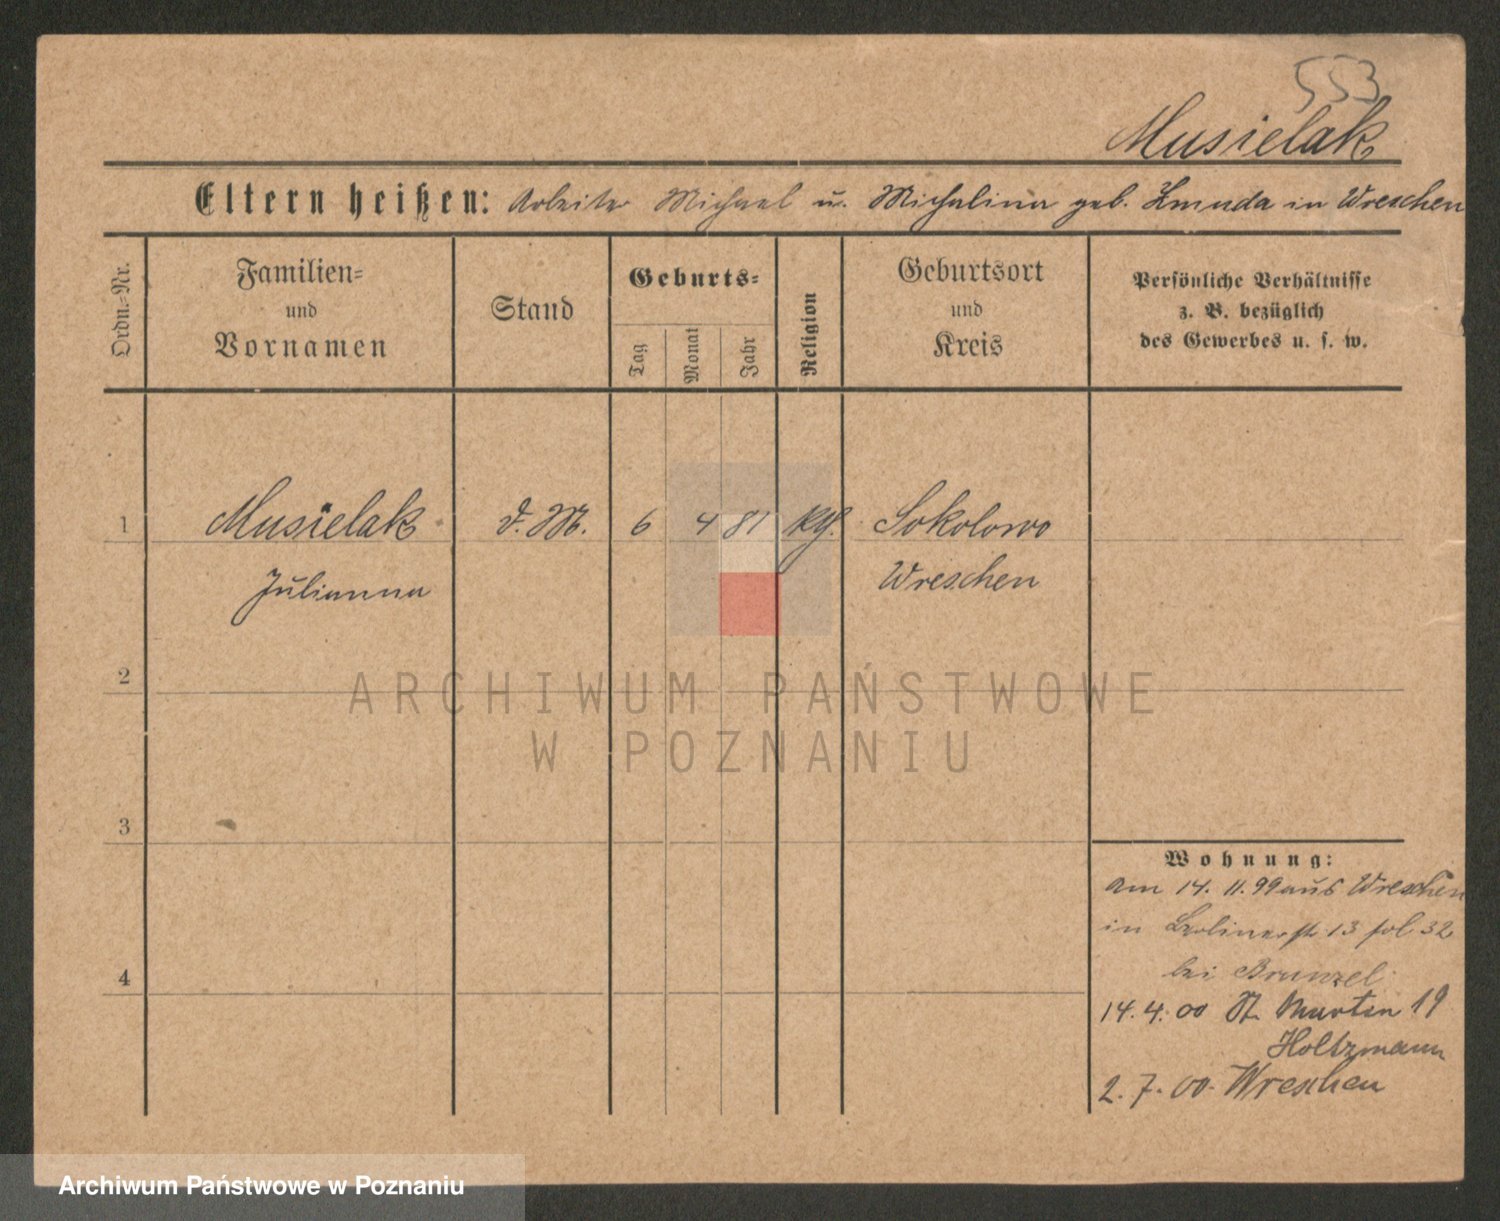 553
Musielak
Eltern heißen: Arbeiter Michael u. Michalina geb. Zmuda in Wreschen
Ordn.-Nr.
Familien-
und
Vornamen
Stand
Geburts-
Tag
Monat
Jahr
Religion
Geburtsort
und
Kreis
Persönliche Verhältnisse
z. B. bezüglich
des Gewerbes u. s. w.
1 Musielak d. M. 6 4 81 kth. Sokolowo
Julianna Wreschen
2
ARCHIWUM PAŃSTWOWE
W POZNANIU
3
Wohnung:
am 14. 11. 99 aus Wreschen
in Berlinerstr. 13 pol. 32
4
bei Brunzel
14. 4. 00 St. Martin 19
Holtzmann
2. 7. 00. Wreschen
Archiwum Państwowe w Poznaniu